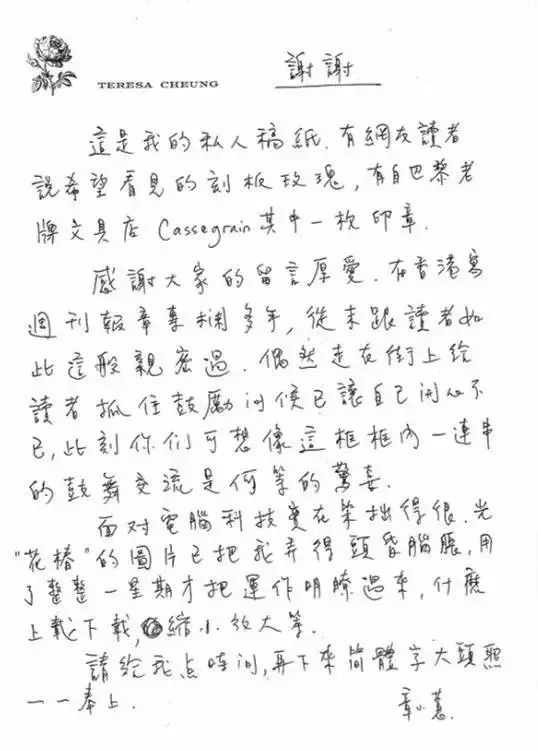 TERESA CHEUNG
謝謝
這是我的私人稿紙. 有網友讀者
說希望看見的刻板玫瑰, 有自巴黎老
牌文具店 Cassegrain 其中一枚印章.
感謝大家的留言厚愛. 在香港寫
週刊報章專欄多年, 從未跟讀者如
此這般親密過. 偶然走在街上给
讀者抓住鼓勵问候已讓自己闹心不
已, 此刻你们可想像這框框内一連串
的鼓舞交流是何等的驚喜.
面对電腦科技實在笨拙得很. 光
“花椿”的圖片已把我弄得頭昏腦脹, 用
了整整一星期才把運作明瞭過來, 什麽
上載下載, 縮小放大等.
請给我点时间, 再下來简體字大頭照
一一奉上.
章小蕙.